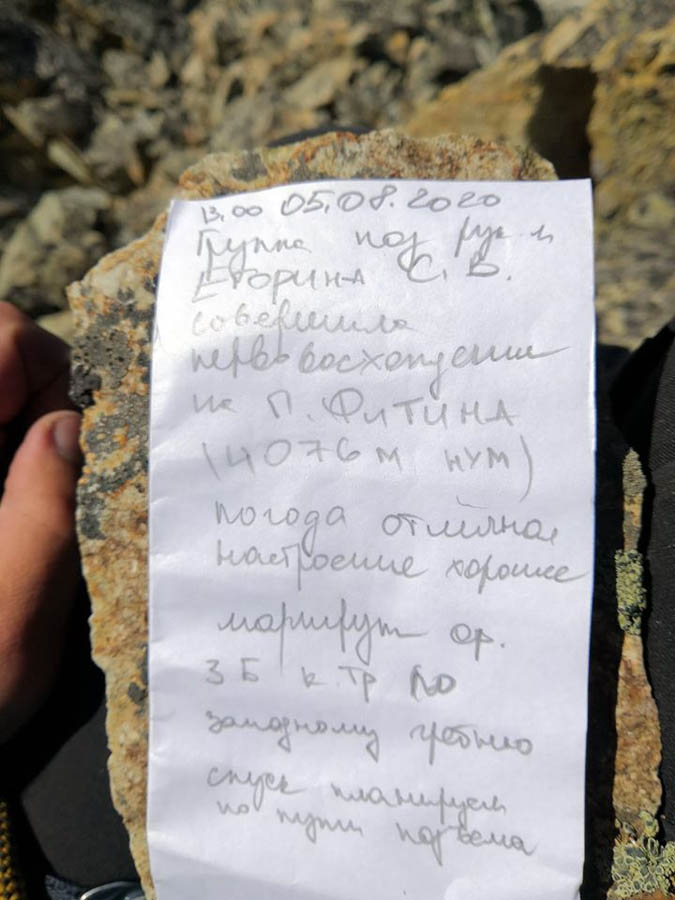 13.00 05.08.2020
Группа под рук-м
Егорина С.В.
совершила
первовосхождение
на П. ФИТИНА
(4076м НУМ)
погода отличная
настроение хорошее
маршрут ор.
3Б к.тр по
западному гребню
спуск планируем
по пути подъема